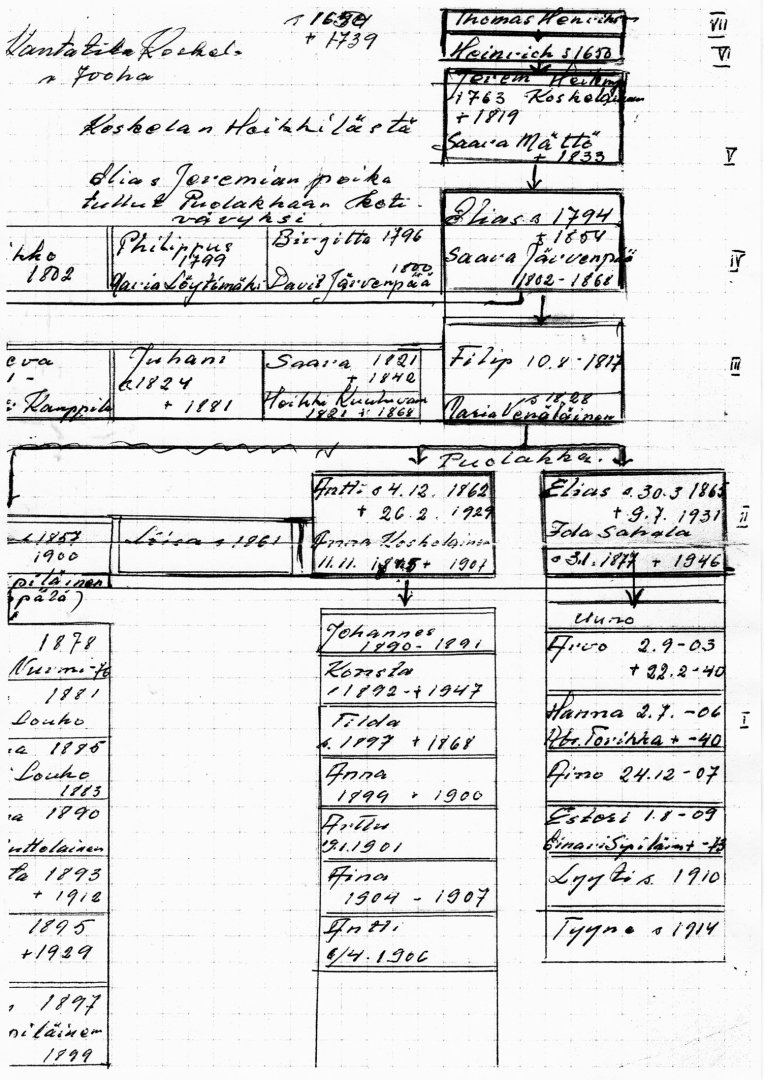 s 1654
+ 1739
Kantatila Koskel-
n Jooha
Koskelan Heikkilästä
Elias Jeremian poika
tullut Puolakkaan koti-
vävyksi
Thomas Henrikss
VII
Heinrich s 1650
VI
Jerem
1763 Koskelainen
+ 1819
Saara Mättö
+ 1833
V
Elias s 1794
+ 1854
Saara Järvenpää
1802 - 1868
IV
kko
1802
Philippus
1799
Maria Löytömäki
Birgitta 1796
1800
David Järvenpää
eva
1 -
Kamppila
Juhani
s 1824
+ 1881
Saara 1821
+ 1842
Heikki Kuuluvan
1821 + 1868
Filip 10.8 - 1817
s 1828
Maria Venäläinen
III
Puolakka.
1857
1900
piläinen
pälä)
Loisa s 1861
Antti s 4.12. 1862
+ 26.2. 1929
Anna Koskelainen
11.11. + 1907
Elias s. 30.3 1865
+ 9.7. 1931
Ida Sahala
s 31. 1877 + 1946
II
1878
Nurmi -76
1881
Louho
a 1885
Louho
1883
a 1890
uttolainen
ta 1893
+ 1912
1895
+ 1929
1897
piläinen
1899
Johannes
1890 - 1891
Konsta
s 1892 - + 1947
Tilda
s. 1897 + 1868
Anna
1899 + 1900
Arttu
1901
Aina
1904 - 1907
Antti
6/4. 1906
Uuno
Arvo 2.9 - 03
+ 22.2 - 40
Hanna 2.7. - 06
Abr. Torikka + - 40
I
Aino 24.12 - 07
Esteri 1.8 - 09
Einari Sipiläin + - 73
Lyyti s. 1910
Tyyne s 1914